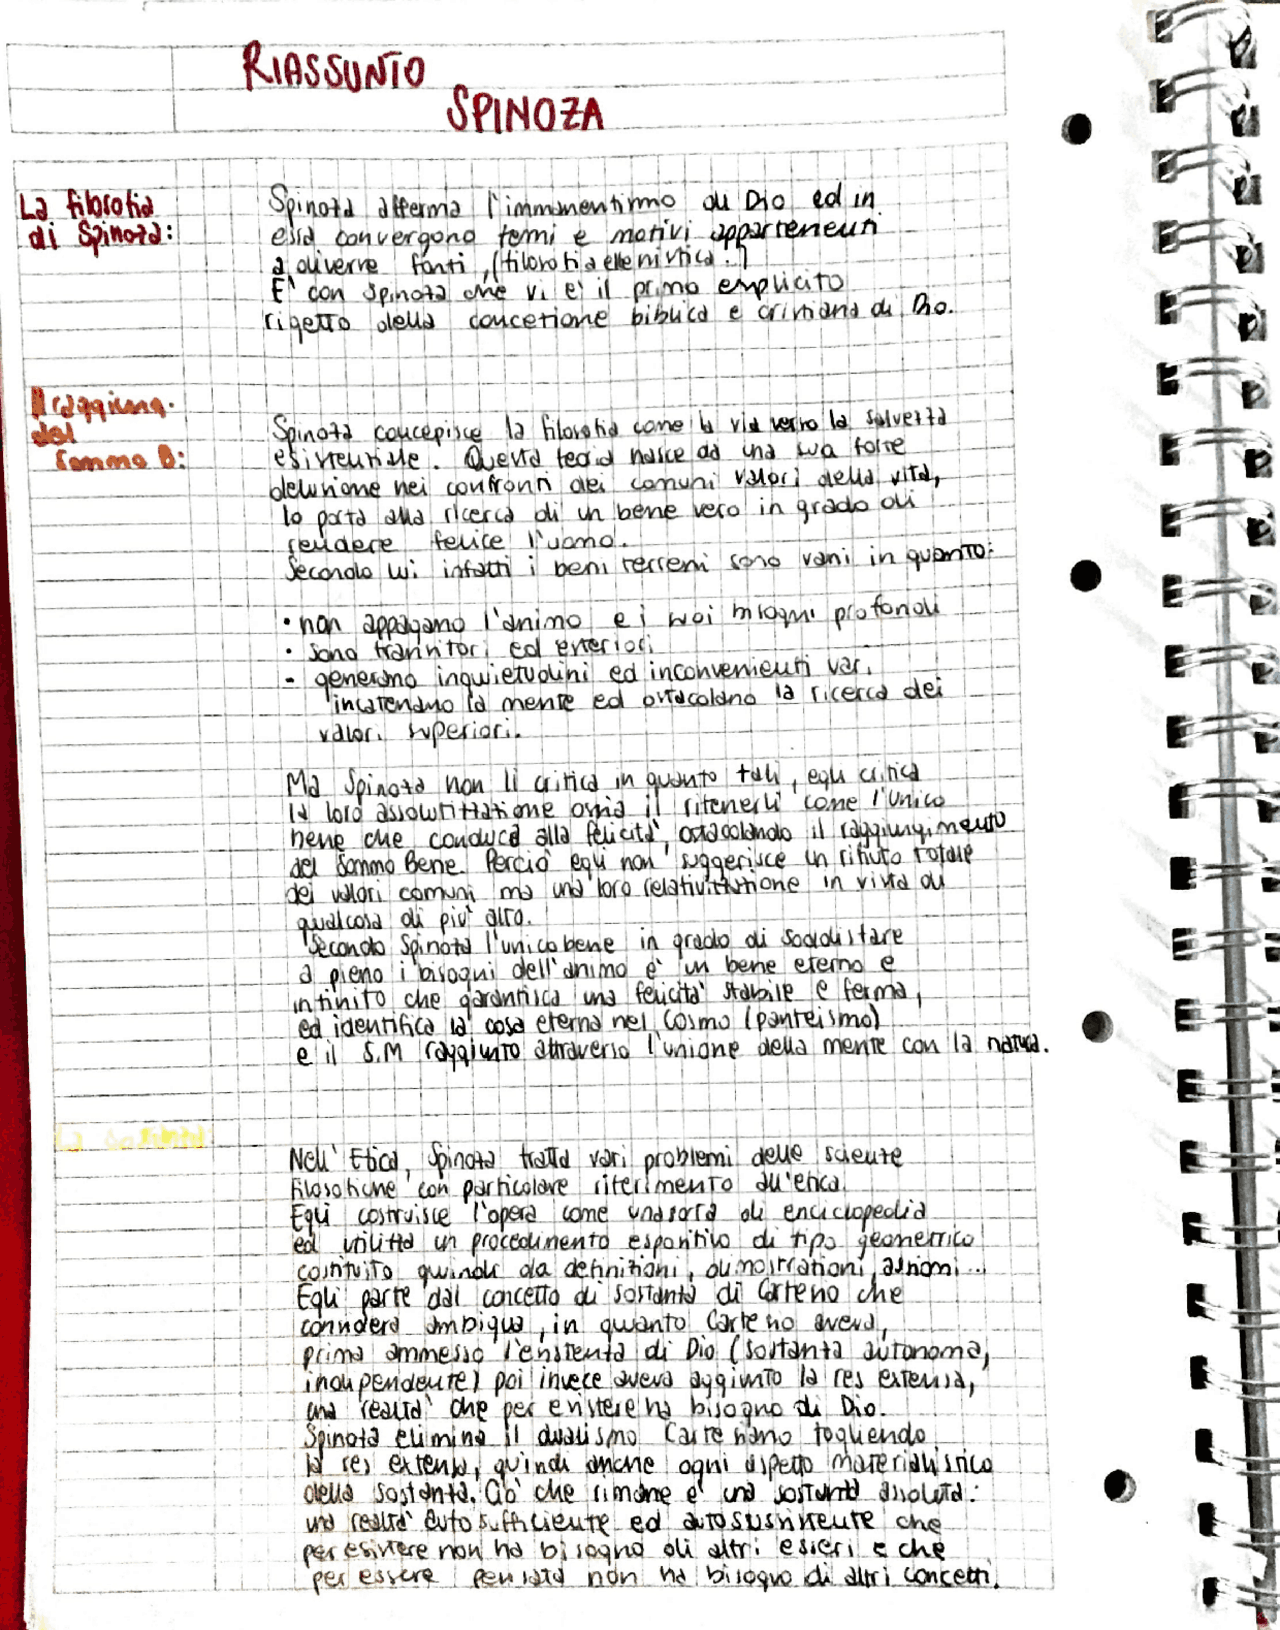 RIASSUNTO
SPINOZA
La filosofia
di Spinoza:
Spinoza afferma l'immanentismo di Dio ed in
essa convergono temi e motivi appartenenti
a diverse fonti, (filosofia ellenistica..)
E' con Spinoza che vi è il primo esplicito
rigetto della concezione biblica e cristiana di Dio.
Il raggiung.
del
Sommo B:
Spinoza concepisce la filosofia come la via verso la salvezza
esistenziale. Questa teoria nasce da una sua forte
delusione nei confronti dei comuni valori della vita,
lo porta alla ricerca di un bene vero in grado di
rendere felice l'uomo.
Secondo lui infatti i beni terreni sono vani in quanto:
• non appagano l'animo e i suoi bisogni profondi
• sono transitori ed esteriori
- generano inquietudini ed inconvenienti vari
incatenano la mente ed ostacolano la ricerca dei
valori superiori.
Ma Spinoza non li critica in quanto tali, egli critica
la loro assolutizzazione ossia il ritenerli come l'unico
bene che conduca alla felicità, ostacolando il raggiungimento
del Sommo Bene. Perciò egli non suggerisce un rifiuto totale
dei valori comuni ma una loro relativizzazione in vista di
qualcosa di più alto.
Secondo Spinoza l'unico bene in grado di soddisfare
a pieno i bisogni dell'animo è un bene eterno e
infinito che garantisca una felicità stabile e ferma,
ed identifica la cosa eterna nel Cosmo (panteismo)
e il S.M raggiunto attraverso l'unione della mente con la natura.
La Sostanza:
Nell'Etica, Spinoza tratta vari problemi delle scienze
filosofiche con particolare riferimento all'etica.
Egli costruisce l'opera come una sorta di enciclopedia
ed utilizza un procedimento espositivo di tipo geometrico
costituito quindi da definizioni, dimostrazioni, assiomi...
Egli parte dal concetto di sostanza di Cartesio che
considera ambigua, in quanto Cartesio aveva,
prima ammesso l'esistenza di Dio (sostanza autonoma,
indipendente) poi invece aveva aggiunto la res extensa,
una realtà che per esistere ha bisogno di Dio.
Spinoza elimina il dualismo Cartesiano togliendo
la res extensa, quindi anche ogni aspetto materialistico
della sostanza. Ciò che rimane è una sostanza assoluta:
una realtà autosufficiente ed autosussistente che
per esistere non ha bisogno di altri esseri e che
per essere pensata non ha bisogno di altri concetti.